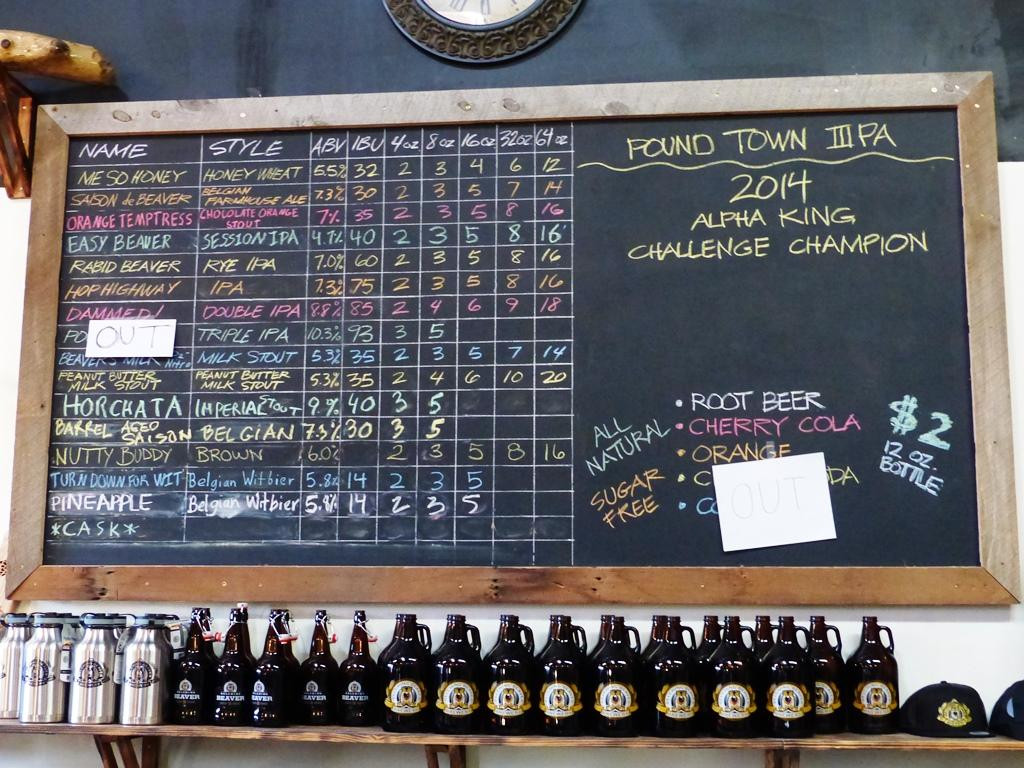 NAME STYLE ABV IBU 4oz 8oz 16oz 32oz 64oz
ME SO HONEY HONEY WHEAT 5.5% 32 2 3 4 6 12
SAISON de BEAVER BELGIAN FARMHOUSE ALE 7.3% 30 2 3 5 7 14
ORANGE TEMPTRESS CHOCOLATE ORANGE STOUT 7% 35 2 3 5 8 16
EASY BEAVER SESSION IPA 4.7% 40 2 3 5 8 16
RABID BEAVER RYE IPA 7.0% 60 2 3 5 8 16
HOP HIGHWAY IPA 7.3% 75 2 3 5 8 16
DAMMED! DOUBLE IPA 8.8% 85 2 4 6 9 18
OUT TRIPLE IPA 10.3% 93 3 5
BEAVER'S MILK Nitro MILK STOUT 5.3% 35 2 3 5 7 14
PEANUT BUTTER MILK STOUT PEANUT BUTTER MILK STOUT 5.3% 35 2 4 6 10 20
HORCHATA IMPERIAL STOUT 9.9% 40 3 5
BARREL AGED SAISON BELGIAN 7.3% 30 3 5
NUTTY BUDDY BROWN 6.0% 2 3 5 8 16
TURN DOWN FOR WIT Belgian Witbier 5.8% 14 2 3 5
PINEAPPLE Belgian Witbier 5.8% 14 2 3 5
*CASK*
POUND TOWN IIIPA
2014
ALPHA KING
CHALLENGE CHAMPION
ALL NATURAL
SUGAR FREE
• ROOT BEER
• CHERRY COLA
• ORANGE
OUT
$2
12 OZ.
BOTTLE
BEAVER
BEAVER
BEAVER
BEAVER
BEAVER